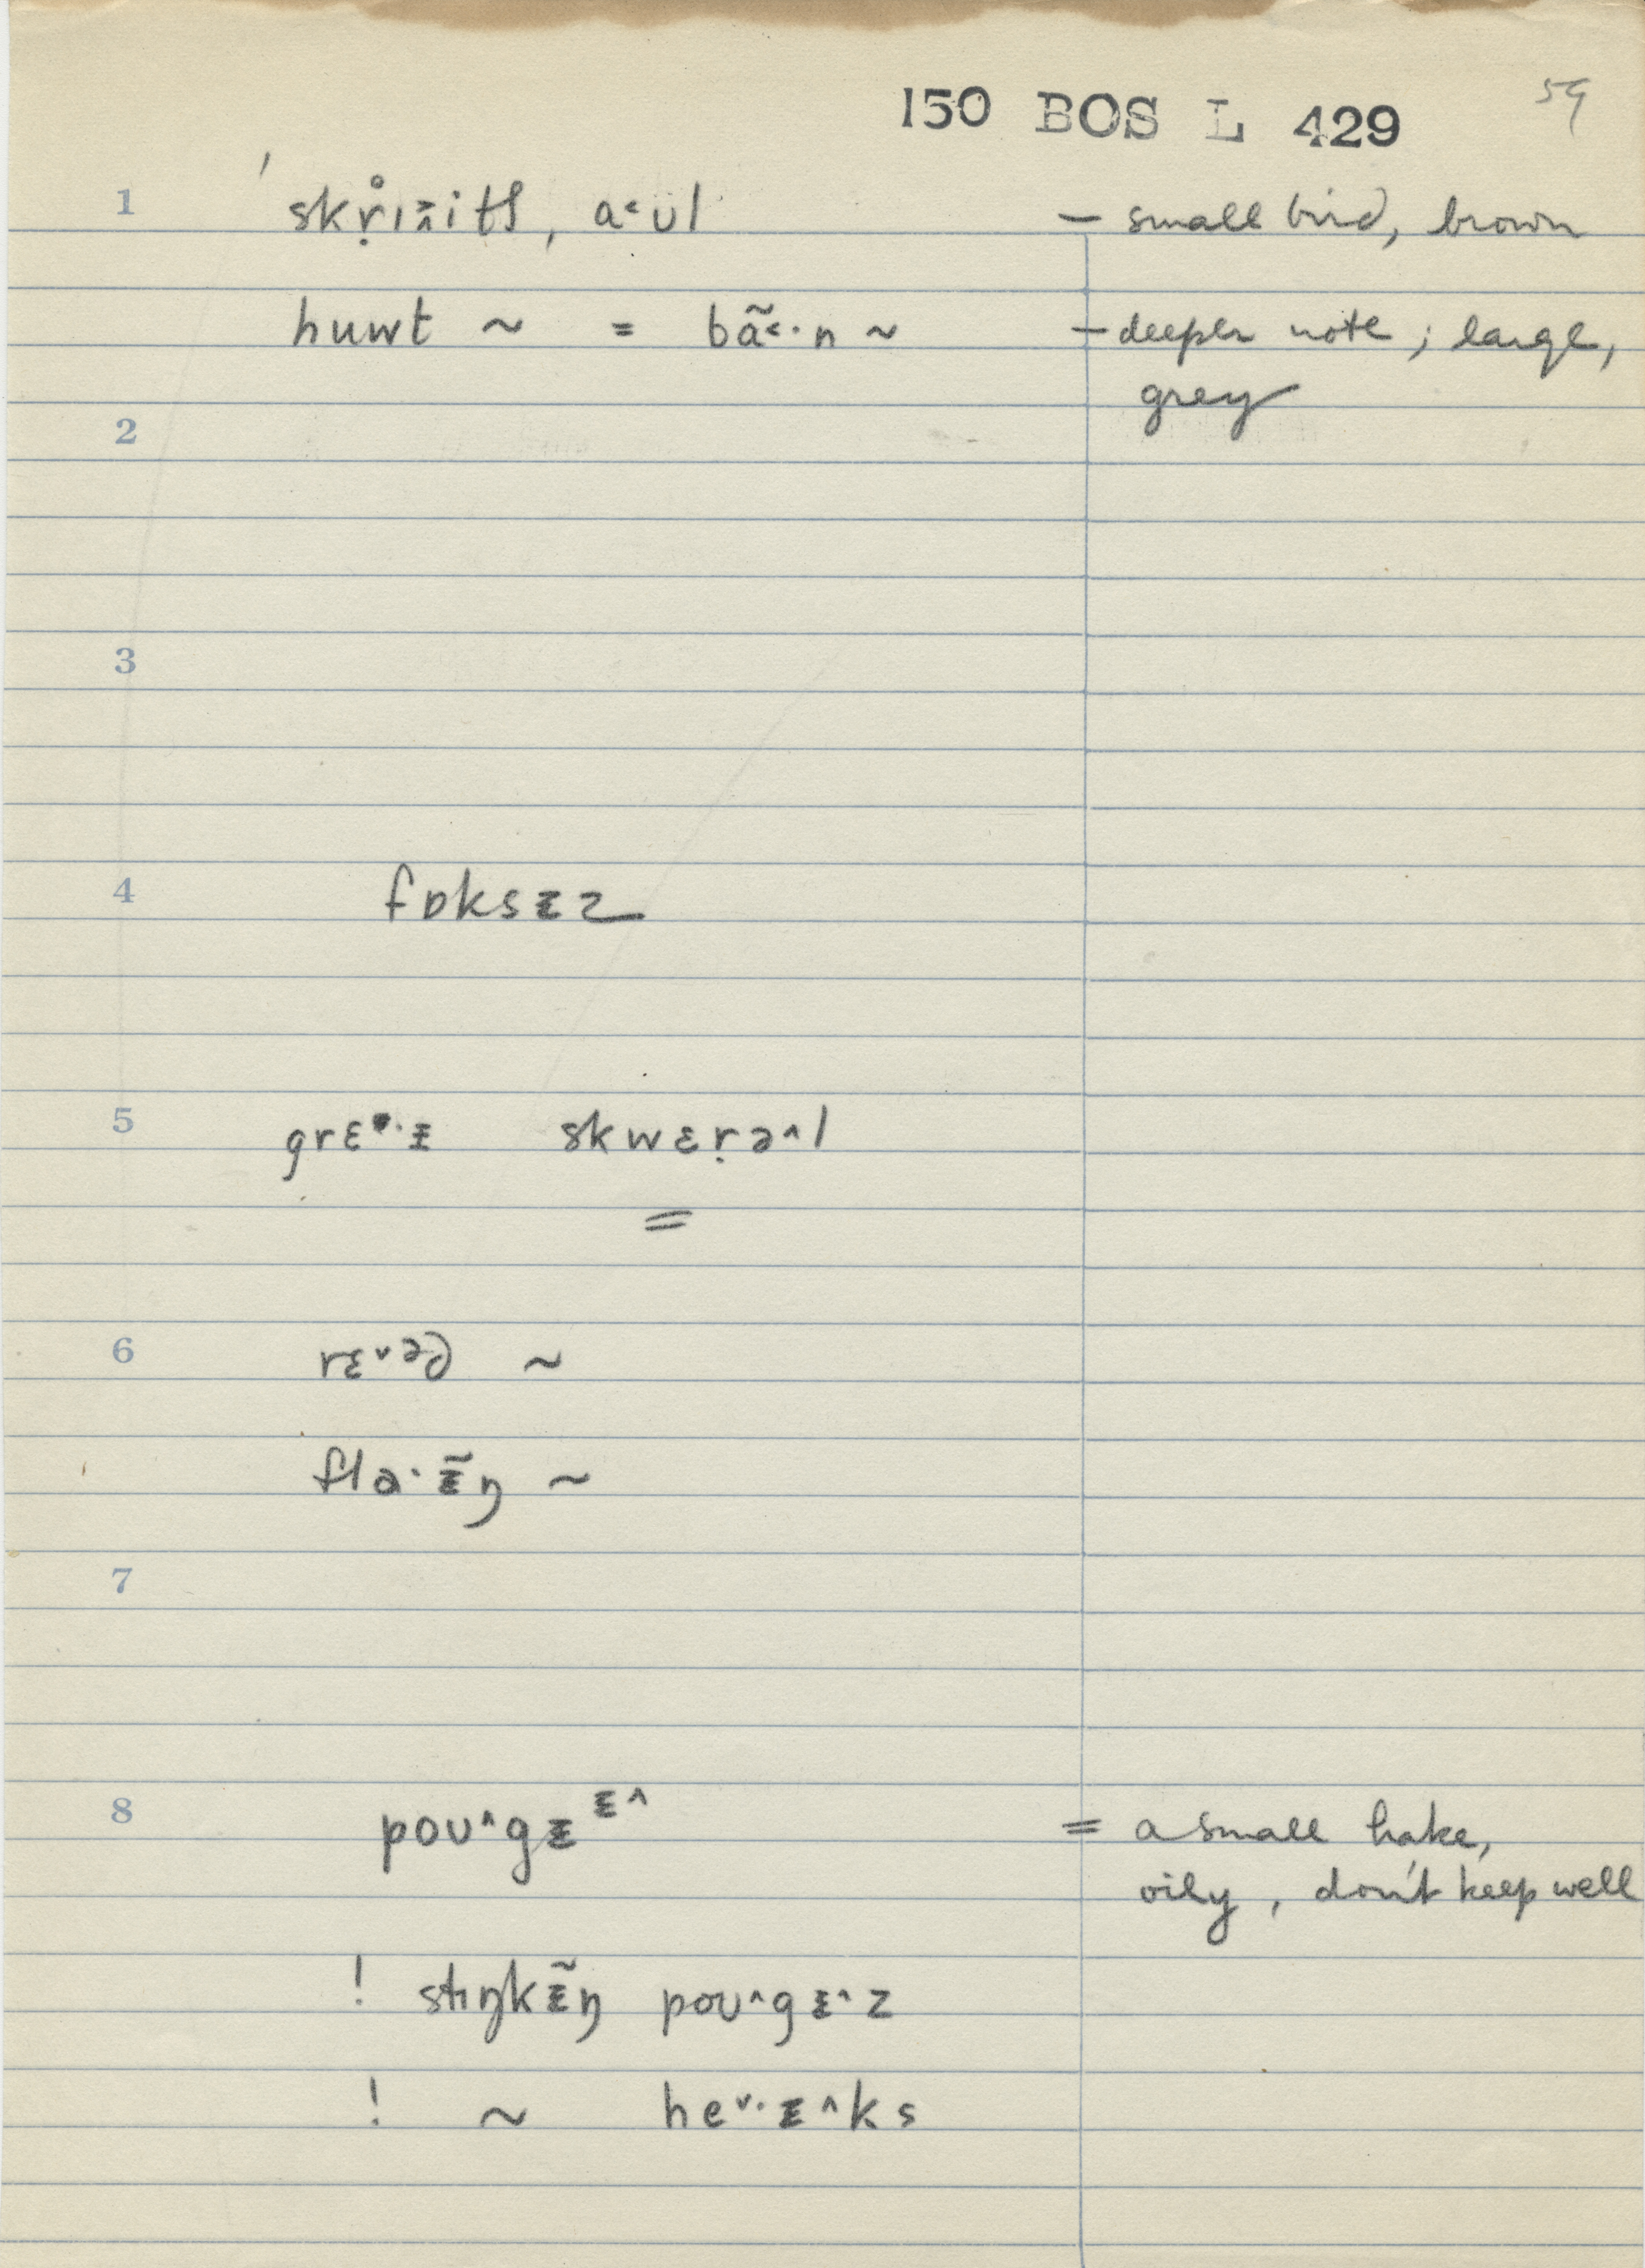 150 BOS L 429 59
1 skṛ̊ɪʌ̃itʃ, a˂ʊl – small bird, brown
huwt ~ = bã˂·n ~ – deeper note; large,
grey
2
3
4 fɒksᵻz
5 grɛ·ᵻ skwɛṛə^l
=
6 rɛ˅əd ~
fla·ᵻ̃ŋ ~
7
8 poʊ^gᵻᵻ^ = a small hake,
oily, don't keep well
! stɪŋkᵻ̃ŋ poʊ^gᵻ^z
! ~ he˅·ᵻ^ks